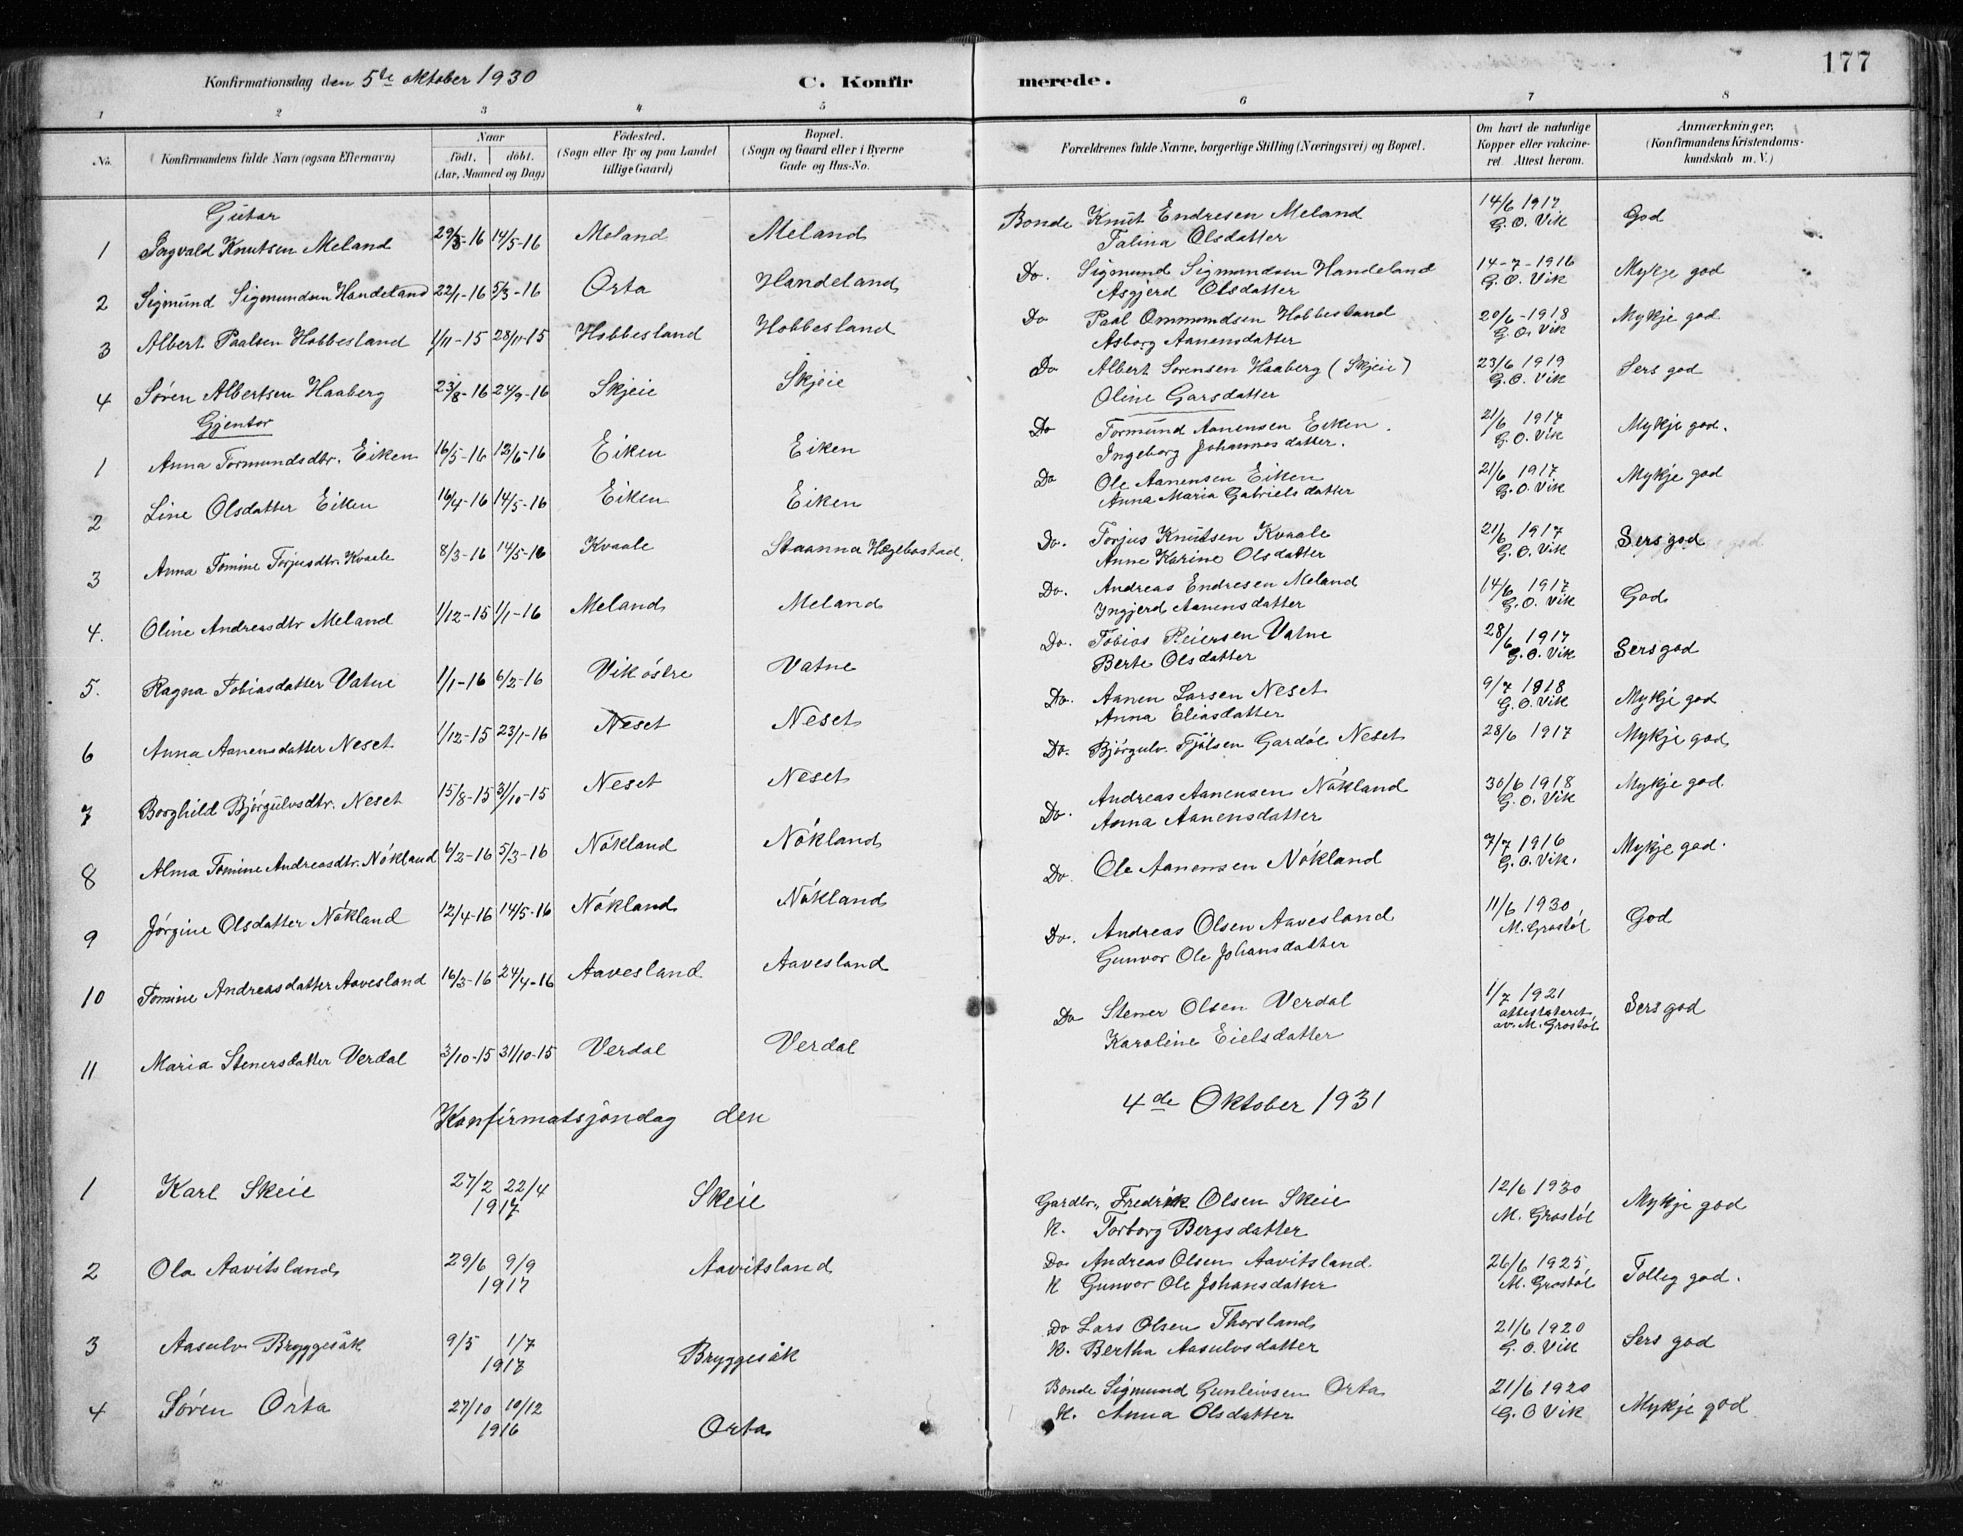 177
Konfirmationsdag den 5te oktober 1930 C. Konfir merede.
1 2 3 4 5 6 7 8
No. Konfirmandens fulde Navn (ogsaa Efternavn) Naar födt. döbt. (Aar, Maaned og Dag) Födested. (Sogn eller By og paa Landet tillige Gaard) Bopæl. (Sogn og Gaard eller i Byerne Gade og Hus-No. Forældrenes fulde Navne, borgerlige Stilling (Næringsvei) og Bopæl. Om havt de naturlige Kopper eller vakcineret Attest herom. Anmærkninger. (Konfirmandens Kristendomskundskab m. V.)
Gutar
1 Torgvald Knutsen Meland 29/3-16 14/5-16 Meland Meland Bonde Knut Endresen Meland 14/6 1917 God
Talina Olsdatter G. O. Vik
2 Sigmund Sigmundsen Handeland 22/1-16 5/3-16 Orta Handeland Do. Sigmund Sigmundsen Handeland 14-7-1916 Mykje god
Asgjerd Olsdatter G. O. Vik
3 Albert Paalsen Hobbesland 1/11-15 28/11-15 Hobbesland Hobbesland Do Paal Ommundsen Hobbesland 20/6-1918 Mykje god
Asborg Aanensdatter G. O. Vik
4 Søren Albertsen Haaberg 23/8-16 24/9-16 Skjeie Skjeie Do Albert Sørensen Haaberg (Skjeie) 23/6 1919 Sers god
Oline Garsdatter G. O. Vik
Gjentor
1 Anna Tormundsdtr. Eiken 16/5-16 12/6-16 Eiken Eiken Do Tormund Aanensen Eiken. 21/6 1917 Mykje god.
Ingeborg Johannesdatter. G. O. Vik
2 Line Olsdatter Eiken 16/4-16 14/5-16 Eiken Eiken Do Ole Aanensen Eiken 21/6 1917 Mykje god
Anna Maria Gabrielsdatter G. O. Vik
3 Anna Tomine Torjusdtr. Kvaale 8/3-16 14/5-16 Kvaale Staanna Hægebostad. Do. Torjus Knutsen Kvaale 21/6 1917 Sers god
Anne Karine Olsdatter G. O. Vik
4. Oline Andreasdtr Meland 1/12-15 1/1-16 Meland Meland Do. Andreas Endresen Meland 14/6 1917 God
Yngjerd Aanensdatter G. O. Vik
5. Ragna Tobiasdatter Vatne 1/1-16 6/2-16 Vik östre Vatne Do. Tobias Reiersen Vatne 28/6 1917 Sers god
Berte Olsdatter G. O. Vik
6 Anna Aanensdatter Neset 1/12-15 23/1-16 Neset Neset Do. Aanen Larsen Neset 9/7 1918 Mykje god
Anna Eliasdatter G. O. Vik
7 Borghild Bjørgulvsdtr. Neset 15/8-15 3/10-15 Neset Neset Do. Bjørgulv Tjölsen Gardöl Neset 28/6 1917 Mykje god
8 Alma Tomine Andreasdtr. Nökland 6/2-16 5/3-16 Nökland Nökland Do. Andreas Aanensen Nökland 30/6 1918 Mykje god.
Anna Aanensdatter G. O. Vik
9 Jørgine Olsdatter Nökland 12/4-16 14/5-16 Nökland Nökland Do. Ole Aanensen Nökland 7/7 1916 Mykje god.
G. O. Vik.
10 Tomine Andreasdatter Aavesland 16/3-16 24/4-16 Aavesland Aavesland Do. Andreas Olsen Aavesland 11/6 1930 God
Gunvor Ole Johansdatter M. Grostöl
11 Maria Stenersdatter Verdal 3/10-15 31/10-15 Verdal Verdal Do Stener Olsen Verdal 1/7 1921 Sers god
Karoline Eielsdatter attestateret av. M. Grostöl
Konfirmatsjondag den 4de Oktober 1931
1 Karl Skeie 27/2 22/4 1917 Skeie Gardbr. Fredrik Olsen Skeie 12/6 1930 Mykje god
K. Torborg Bergsdatter M. Grostöl
2 Ola Aavitsland 29/6 9/9 1917 Aavitsland Do Andreas Olsen Aavitsland. 26/6 1925, Tolleg god.
K Gunvor Ole Johansdatter M. Grostöl
3 Aasulv Bryggesåk 9/5 1/7 1917 Bryggesåk Do Lars Olsen Thorsland 21/6 1920 Sers god
K. Bertha Aasulvsdatter G. O. Vik
4 Søren Orta 27/10 10/12 1916 Orta Bonde Sigmund Gunleivsen Orta 21/6 1920 Mykje god
K. Anna Olsdatter G. O Vik